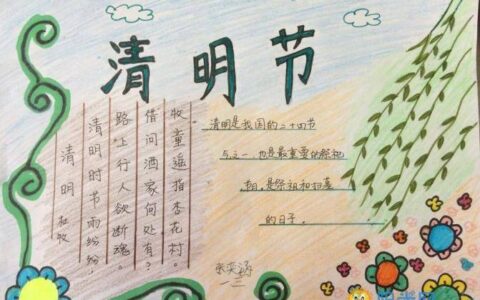 清明节
清明 杜牧
清明时节雨纷纷，
路上行人欲断魂。
借问酒家何处有？
牧童遥指杏花村。
清明是我国的二十四节
气之一，也是最重要的祭祀
，是祭祖和扫墓
的日子。
一三